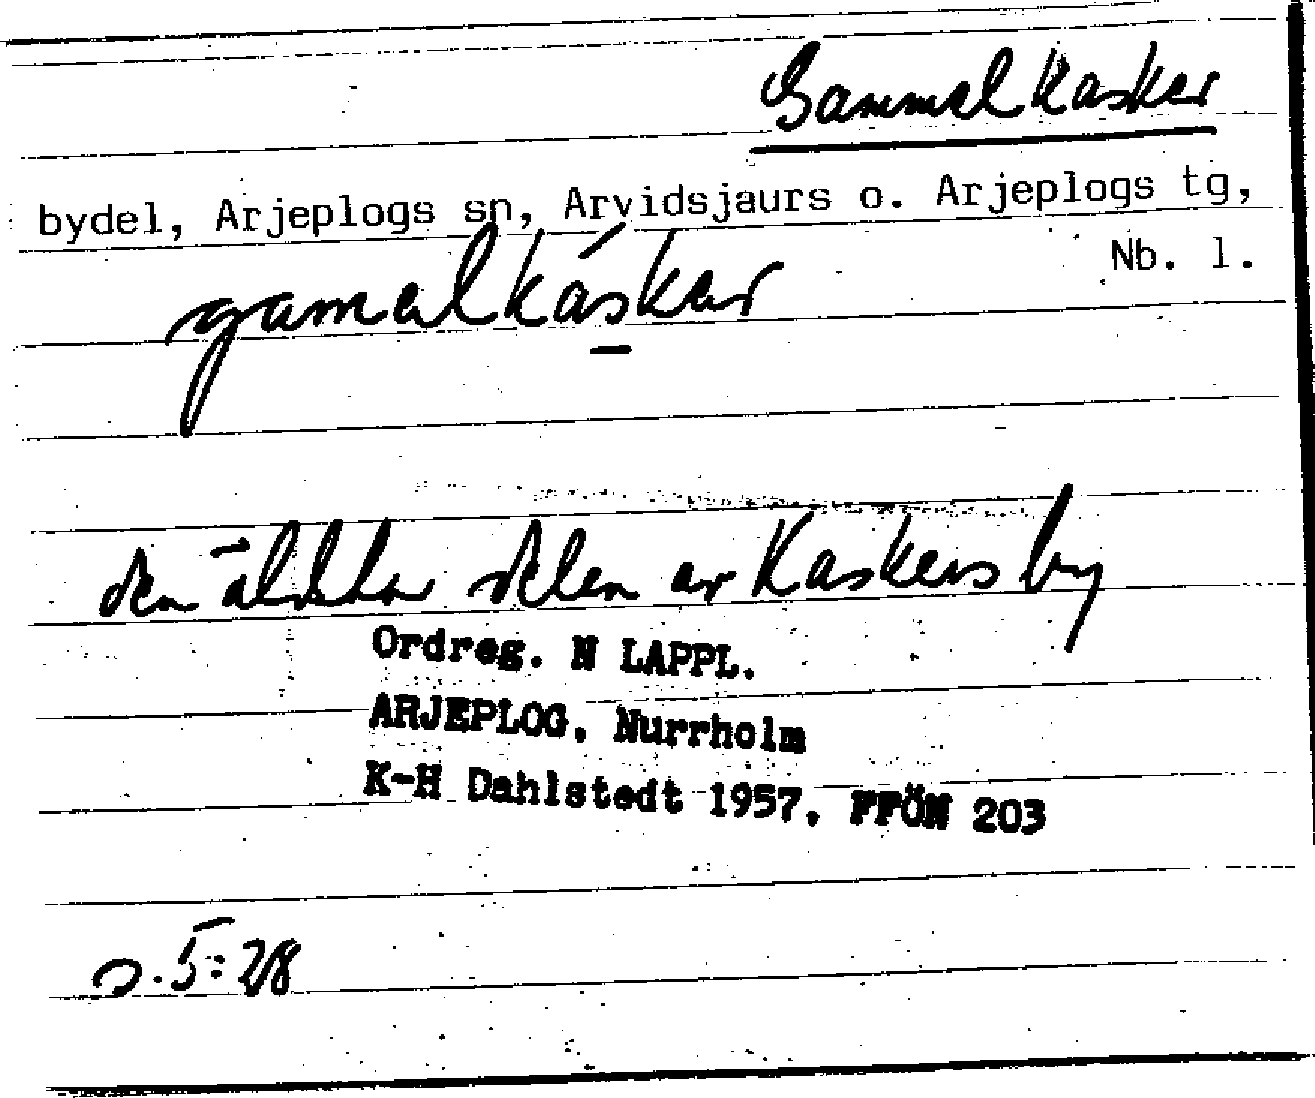 Gammelkasker
bydel, Arjeplogs sn, Arvidsjaurs o. Arjeplogs tg,
Nb. l.
gamelkásker
den äldsta delen av Kaskers by
Ordreg. N LAPPL.
ARJEPLOG. Nurrholm
K-H Dahlstedt 1957. FFÖN 203
5:28